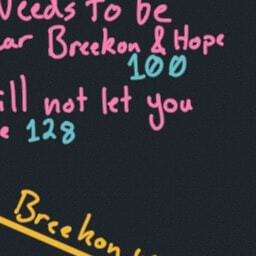 Needs to be
ar Breekon & Hope
100
ill not let you
e 128
Breekon